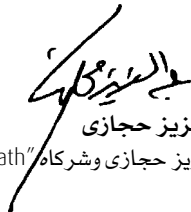 زيز حجازي
يز حجازي وشركاه "ath